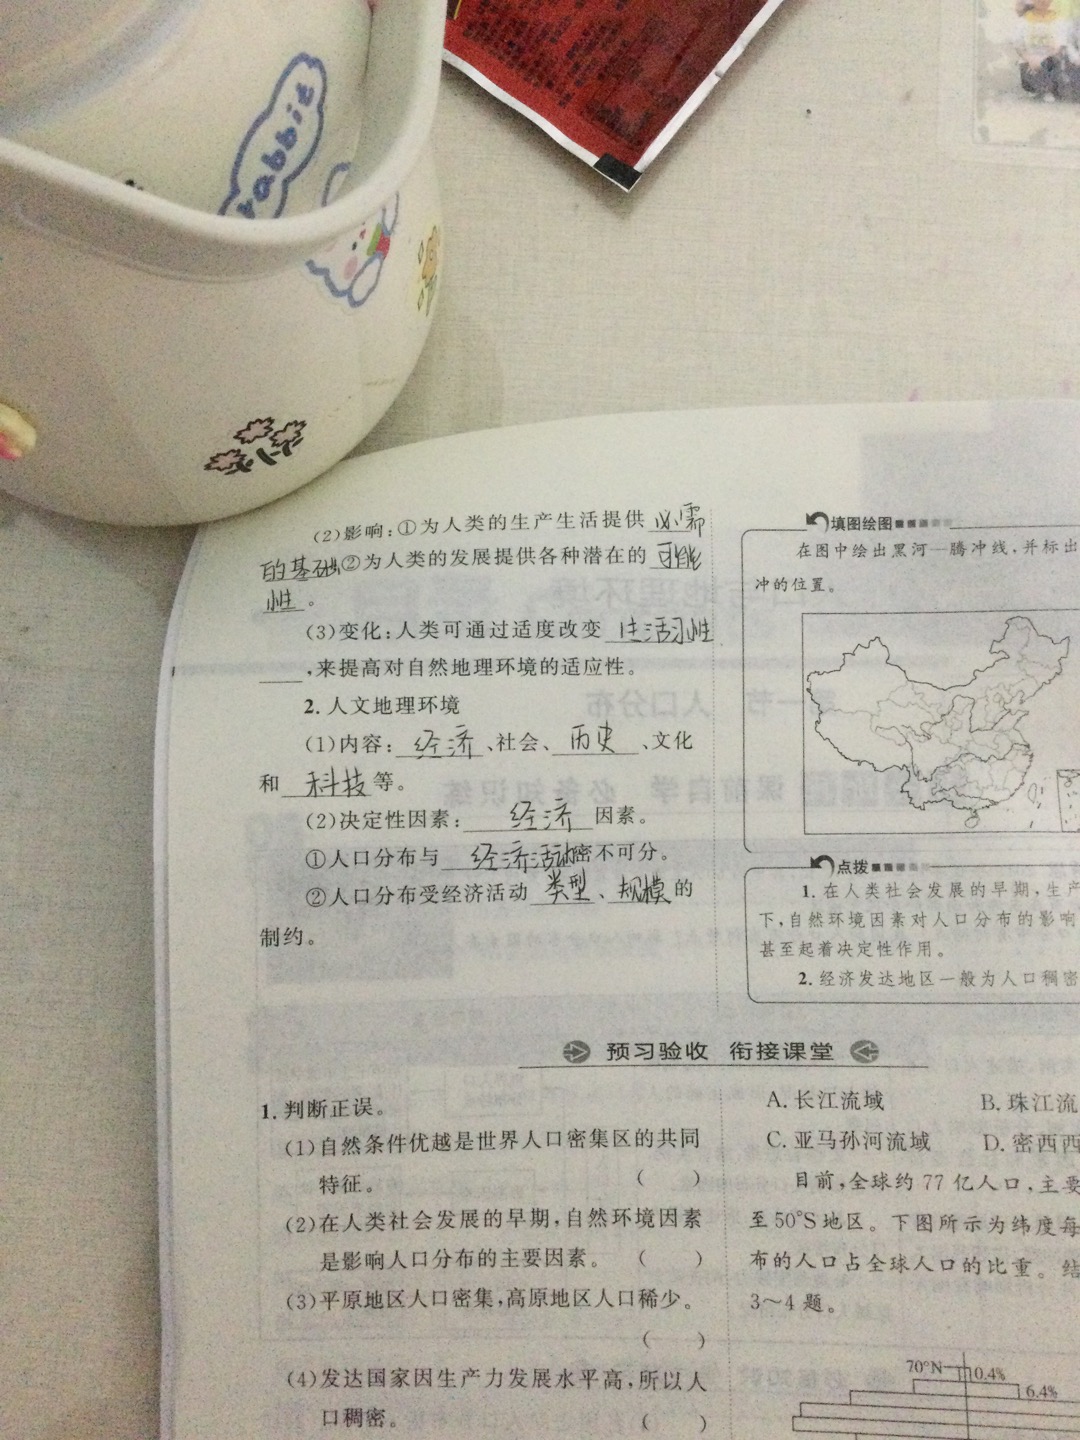 rabbit
(2)影响:①为人类的生产生活提供 必需
的基础②为人类的发展提供各种潜在的 可能
性。
(3)变化:人类可通过适度改变 生活习性
,来提高对自然地理环境的适应性。
2.人文地理环境
(1)内容: 经济、社会、历史、文化
和 科技等。
(2)决定性因素: 经济 因素。
①人口分布与 经济活动密不可分。
②人口分布受经济活动 类型、规模的
制约。
填图绘图
在图中绘出黑河—腾冲线,并标出
冲的位置。
点拨
1.在人类社会发展的早期,生产
下,自然环境因素对人口分布的影响
甚至起着决定性作用。
2.经济发达地区一般为人口稠密
预习验收 衔接课堂
1.判断正误。
(1)自然条件优越是世界人口密集区的共同
特征。 ( )
(2)在人类社会发展的早期,自然环境因素
是影响人口分布的主要因素。 ( )
(3)平原地区人口密集,高原地区人口稀少。
( )
(4)发达国家因生产力发展水平高,所以人
口稠密。 ( )
A.长江流域 B.珠江流
C.亚马孙河流域 D.密西西
目前,全球约77亿人口,主要
至50°S地区。下图所示为纬度每
布的人口占全球人口的比重。结
3～4题。
70°N 0.4%
6.4%